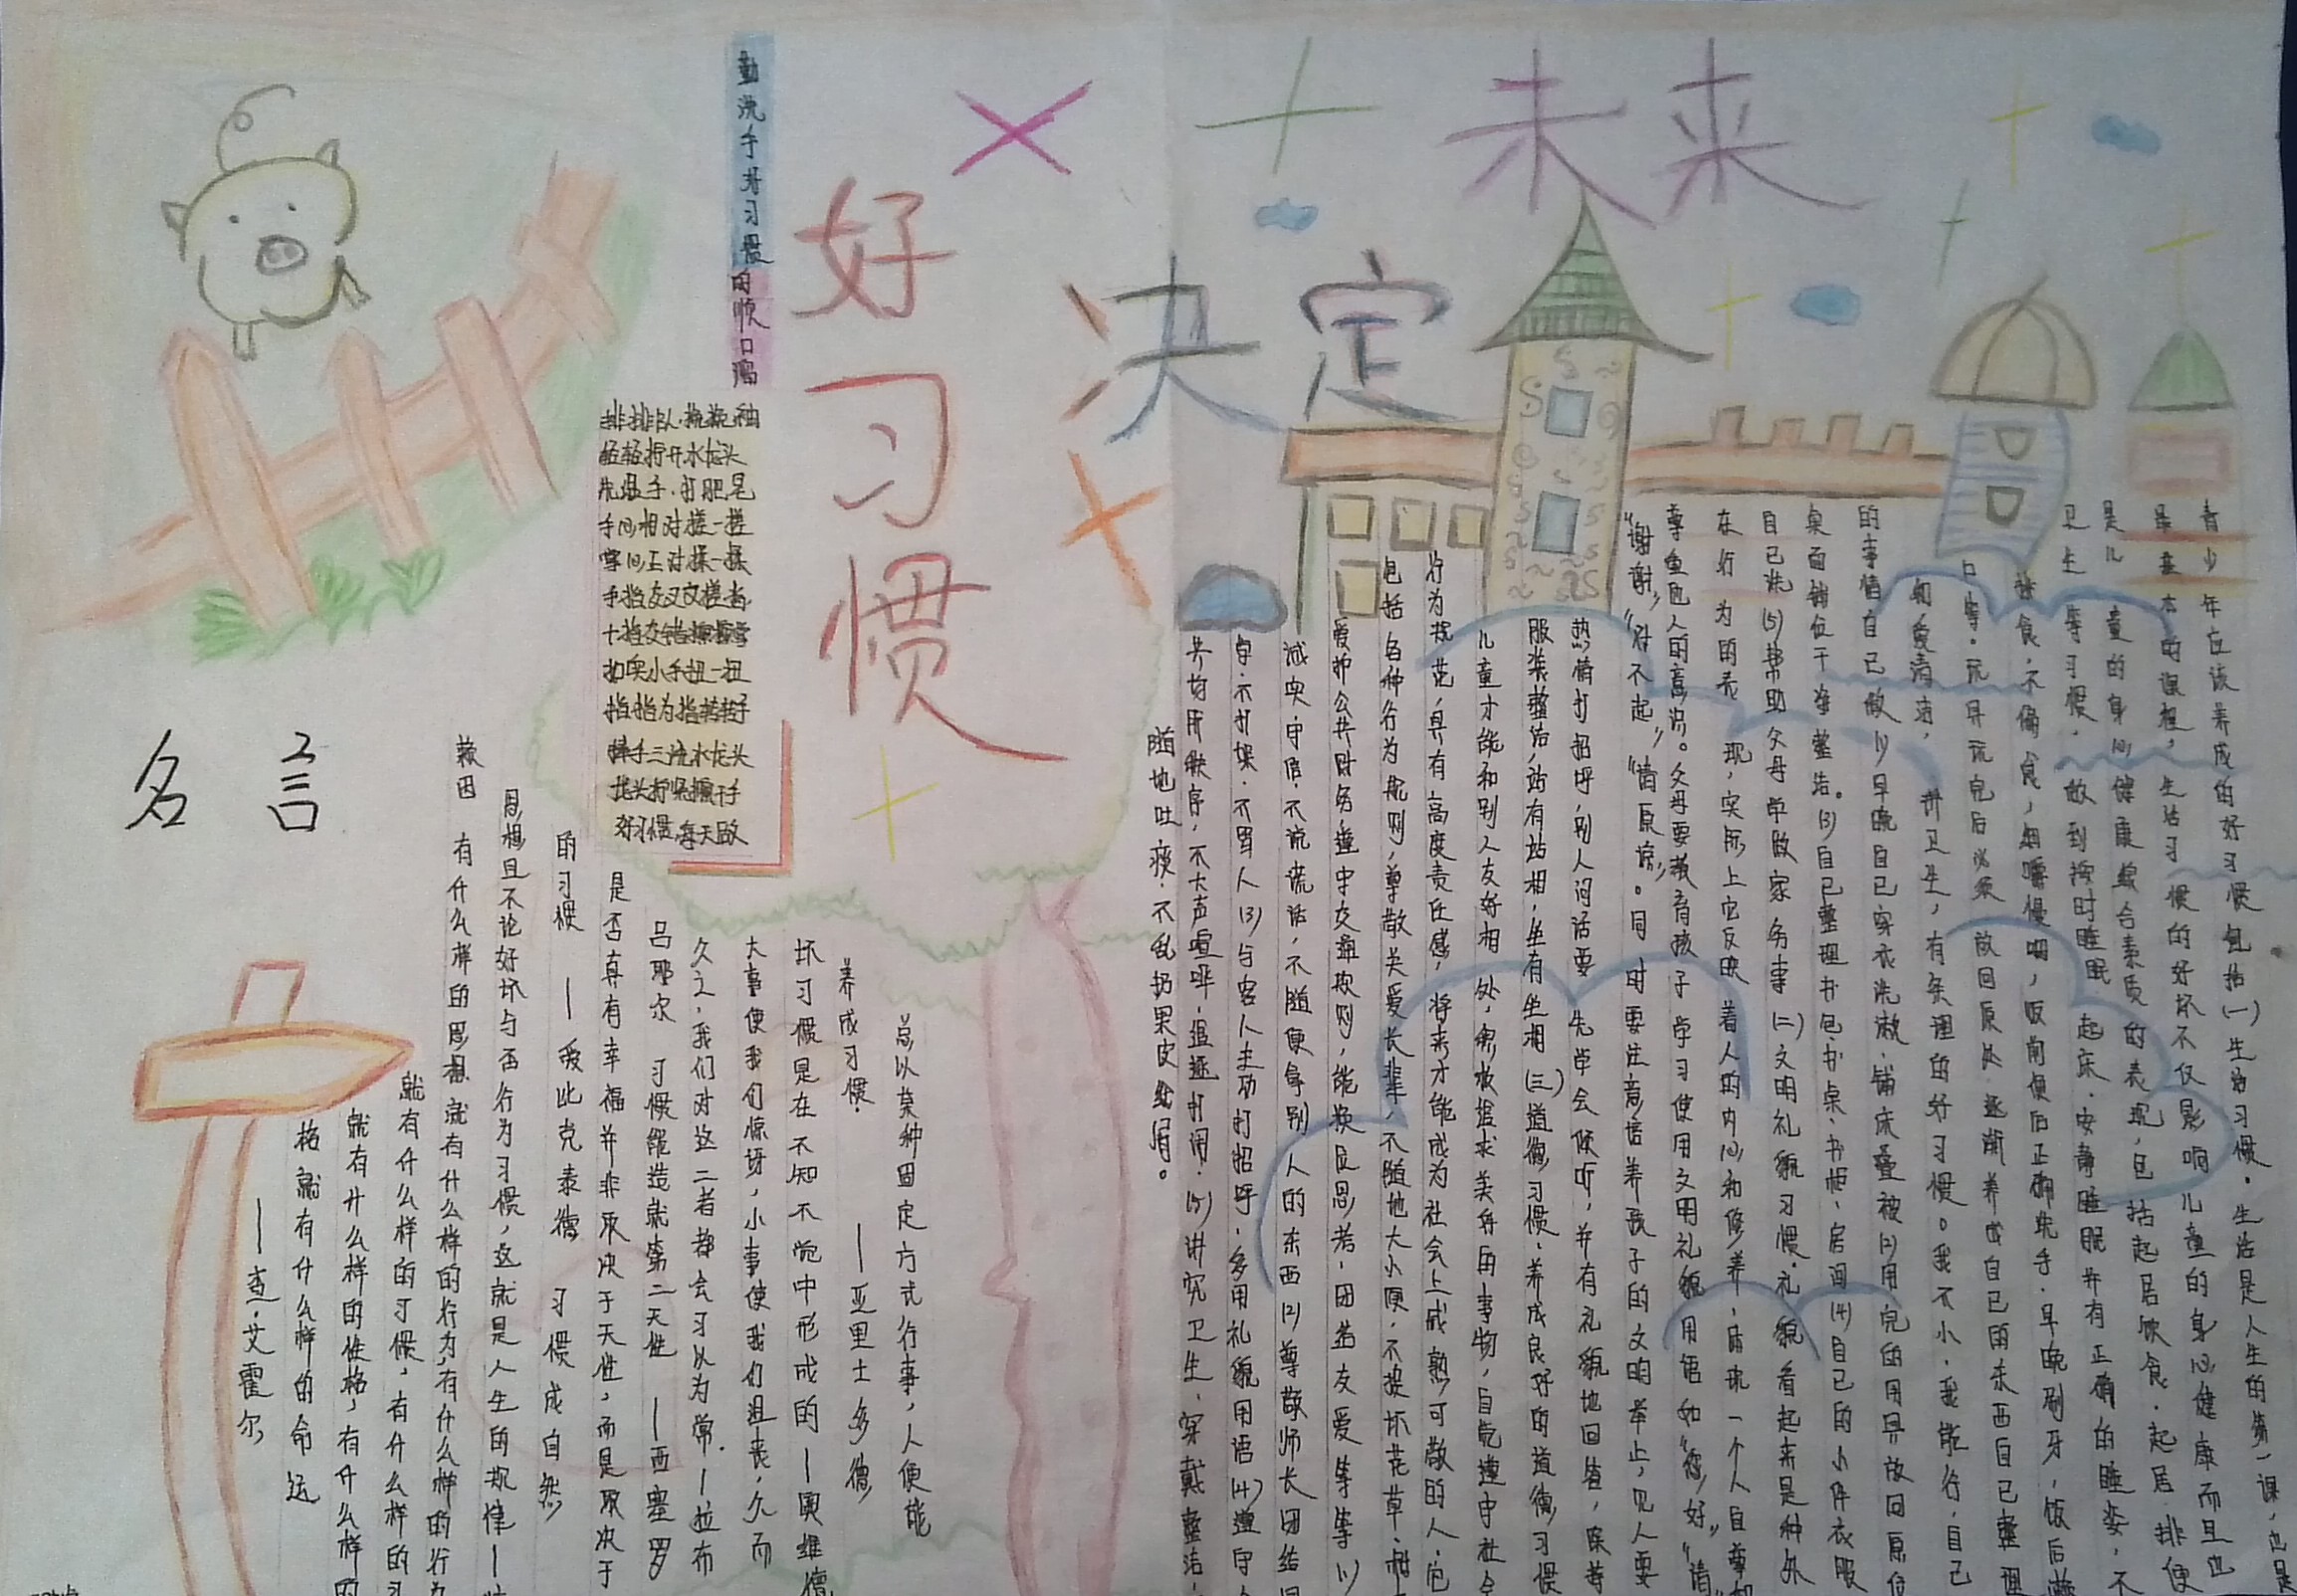 好习惯
决定
未来
勤洗手好习惯的顺口溜
排排队,挽挽袖
轻轻拧开水龙头
先湿手,打肥皂
手心相对搓一搓
掌心正对揉一揉
手指交叉交搓搓
十指交错擦擦掌
扣实小手扭一扭
拇指为指转转手
捧手三洗水龙头
龙头拧紧擦干手
好习惯,每天做
青少年应该养成的好习惯包括(一)生活习惯。生活是人生的第一课,也是
最基本的课程,生活习惯的好坏不仅影响儿童的身心健康而且也
是儿童的身心健康综合素质的表现,包括起居饮食、起居、排便
卫生等习惯,做到按时睡眠起床、安静睡眠并有正确的睡姿,不
食,不偏食,细嚼慢咽,饭前便后正确洗手、早晚刷牙,饭后
口等。玩具玩完后必须放回原处逐渐养成自己的东西自己整理
和爱清洁,讲卫生,有条理的好习惯。我不小,我能行,自己
的事情自己做(1)早晚自己穿衣洗漱、铺床叠被(2)用完的用具放回原位
桌面铺位干净整洁。(3)自己整理书包、书桌、书柜、房间(4)自己的小件衣服
自己洗(5)帮助父母单做家务事(二)文明礼貌习惯。礼貌看起来是种外
在行为的表现,实际上它反映着人的内心和修养,
尊重他人的意识。父母要教育孩子学习使用文明礼貌用语如“您好”“请”
“谢谢”“对不起”“请原谅”。同时要注意培养孩子的文明举止,见人要
热情打招呼,别人问话要先学会倾听,并有礼貌地回答,保持
服装整洁,站有站相,坐有坐相(三)道德习惯、养成良好的道德习惯
儿童才能和别人友好相处,
行为规范,具有高度责任感,将来才能成为社会上成熟,可敬的人,它
包括各种行为规则,尊敬关爱长辈,不随地大小便,不损坏花草、树
爱护公共财务,遵守交通规则,能换位思考,团结友爱等等(1)
诚实,守信,不说谎话,不随便拿别人的东西(2)尊敬师长团结同
学,不打架,不骂人(3)与客人主动打招呼,多用礼貌用语(4)遵守公
共场所秩序,不大声喧哗,追逐打闹,(5)讲究卫生、穿戴整洁,
随地吐痰,不乱扔果皮纸屑。
名言
总以某种固定方式行事,人便能
养成习惯。 ——亚里士多德
坏习惯是在不知不觉中形成的——奥维德
大事使我们惊讶,小事使我们沮丧,久而
久之,我们对这二者都会习以为常.——拉布
吕耶尔 习惯能造就第二天性 ——西塞罗
是否真有幸福并非取决于天性,而是取决于
的习惯 ——爱比克泰德 习惯成自然
思想且不论好坏与否行为习惯,这就是人生的规律——
赖因 有什么样的思想就有什么样的行为,有什么样的行为
就有什么样的习惯,有什么样的习
就有什么样的性格,有什么样的
格就有什么样的命运
——查·艾霍尔